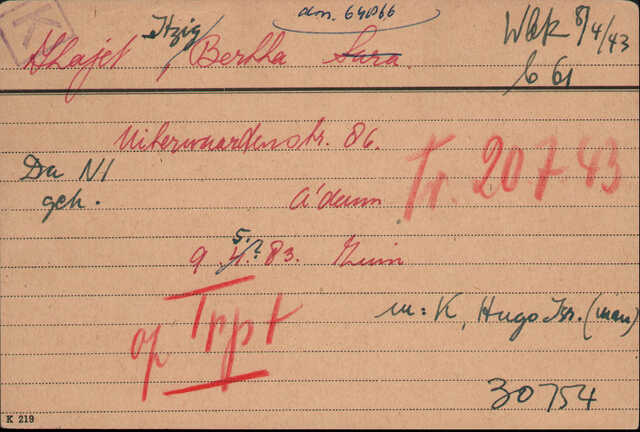 K
dm. 64066
Khajet Itzig / Bertha Sara
Wbk 8/4/43
b 61
Uiterwaardenstr. 86.
Da Nl
geh.
A'dam
Tr. 20 7 43
9 5. 83. Znin
op Trpt
m: K, Hugo Isr. (man)
30754
K 219